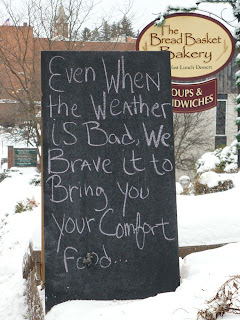 The
Bread Basket
Bakery
Lunch Dessert
SOUPS &
SANDWICHES
Even When
the Weather
is Bad, We
Brave it to
Bring you
your Comfort
food...